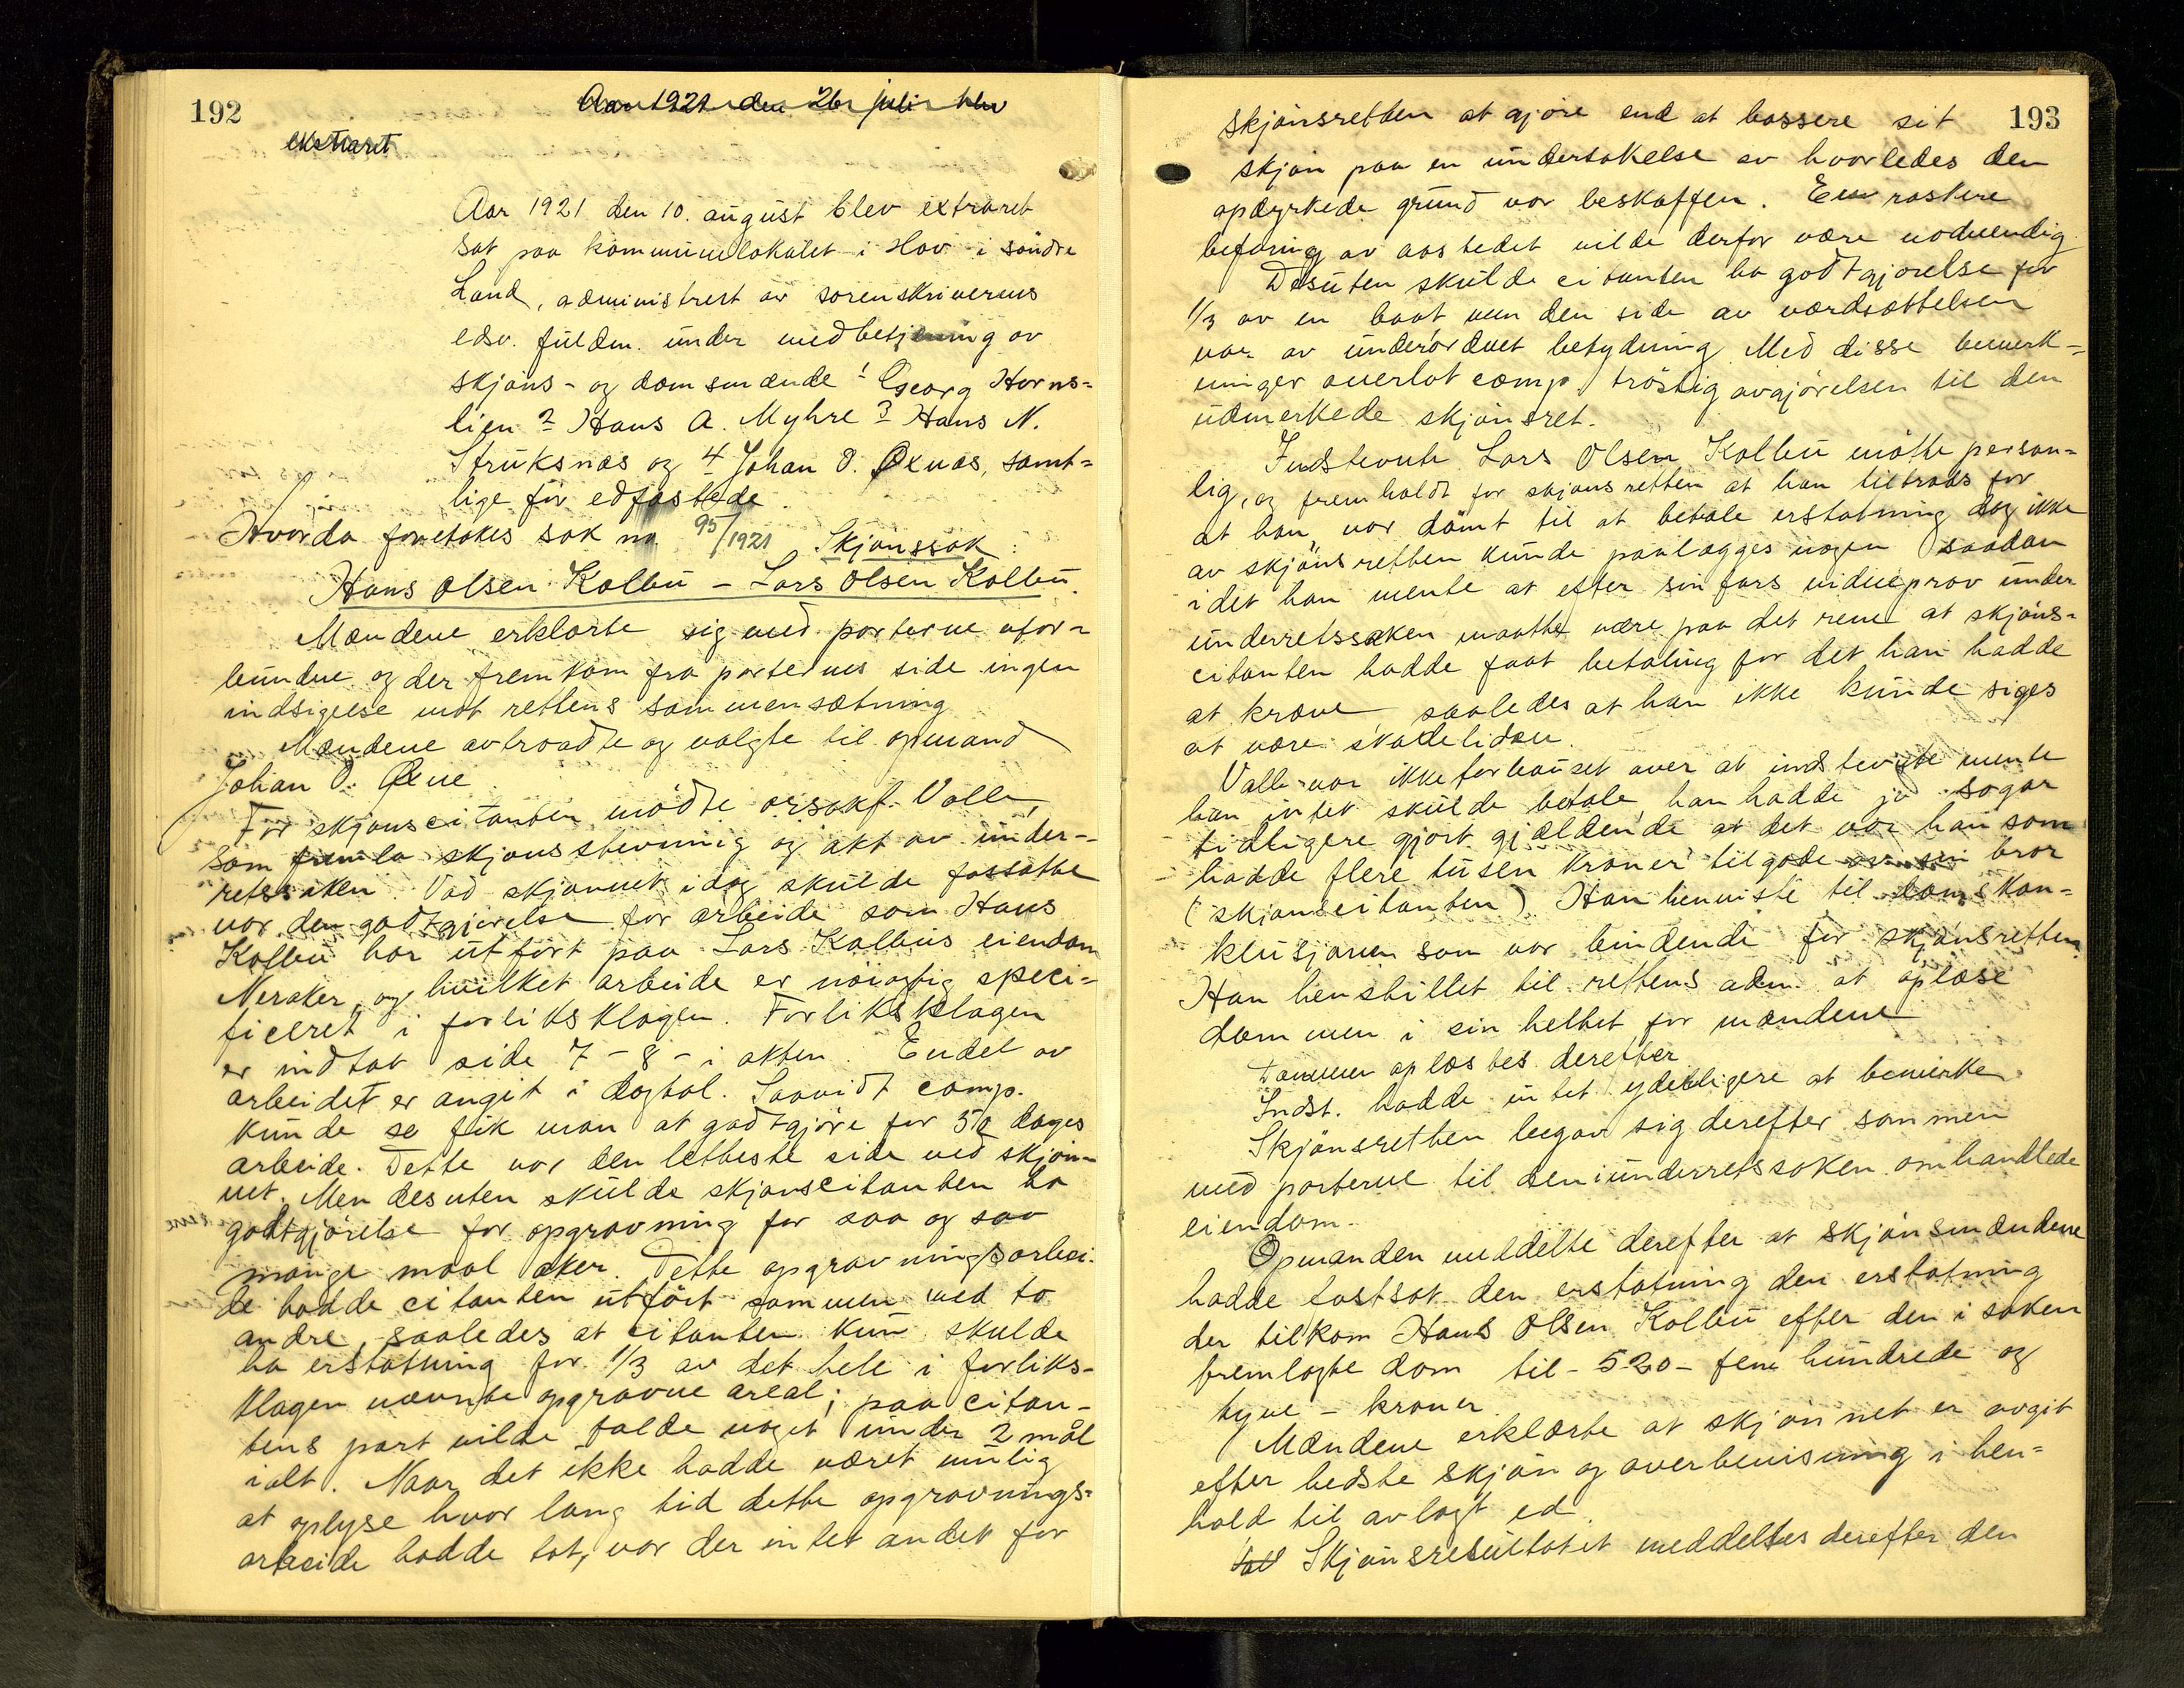 192
Aar 1921 den 26 juli blev
ekstraret
Aar 1921 den 10. august blev extraret
sat paa kommunelokalet i Hov i söndre
Land, administrert av sorenskriverens
edsv. fuldm. under medbetjening av
skjöns- og domsmændene 1 Georg Horns-
lien 2 Hans A. Myhre 3 Hans N.
Struksnæs og 4 Johan O. Öxnæs, samt-
lige för edfæstede
Hvorda foretokes sak no 95/1921 Skjønssak:
Hans Olsen Kolbu - Lars Olsen Kolbu.
Mændene erklærte sig med parterne ufor-
bundne og der fremkom fra parternes side ingen
indsigelse mot rettens sammensætning
Mændene avtraadte og valgte til opmand
Johan O. Øxne
For skjønscitanten mödte orsakf. Valle,
som fremla skjønsstevning og akt av under-
retssaken. Vad skjønnet idag skulde fastsætte
var den godtgjörelse for arbeide som Hans
Kolbu har utfört paa Lars Kolbus eiendom
Neraker, og hvilket arbeide er nöiagtig speci-
ficeret i forliksklagen. Forliksklagen
er indtat side 7-8- i akten. Endel av
arbeidet er angit i dagtal. Saavidt comp.
kunde se fik man at godtgjöre for 52 dages
arbeide. Dette var den letteste side ved skjön-
net. Men desuten skulde skjønscitanten ha
godtgjörelse for opgravning for saa og saa
mange maal aker. Dette opgravningsarbei-
de hadde citanten utfört sammen med to
andre, saaledes at citanten kun skulde
ha erstatning for 1/3 av det hele i forliks-
klagen nævnte opgravne areal; paa citan-
tens part vilde falde noget under 2 mål
ialt. Naar det ikke hadde været mulig
at oplyse hvor lang tid dette opgravnings-
arbeide hadde tat, var der intet andet for
193
skjönsretten at gjöre end at bassere sit
skjön paa en undersøkelse av hvorledes den
opdyrkede grund var beskaffen. En raskere
befaring av aastedet vilde derfor være nødvendig.
Desuten skulde citanten ha godtgjörelse for
1/3 av en baat men den side av værdsættelsen
var av underordnet betydning. Med disse bemerk-
ninger overlot comp. tröstig avgjörelsen til den
udmerkede skjönsret.
Indstevnte Lars Olsen Kolbu mötte person-
lig, og fremholdt for skjønsretten at han tiltrods for
at han var dömt til at betale erstatning dog ikke
av skjönsretten kunde paalægges nogen saadan
idet han mente at efter sin fars vidneprov under
underretssaken maatte være paa det rene at skjöns-
citanten hadde faat betaling for det han hadde
at kræve, saaledes at han ikke kunde siges
at være skadeliden.
Valle var ikke forbauset over at indstevnte mente
han intet skulde betale, han hadde jo sogar
tidligere gjort gjældende at det var han som
hadde flere tusen kroner tilgode av sin bror
(skjønscitanten). Han henviste til domskon-
klusjonen som var bindende for skjönsretten.
Han henstillet til rettens adm. at oplæse
dommen i sin helhet for mændene
Dommen oplæstes derefter
Indst. hadde intet yderligere at bemerke
Skjönsretten begav sig derefter sammen
med parterne til den i underretssaken omhandlede
eiendom.
Opmanden meddelte derefter at skjönsmændene
hadde fastsat den erstatning den erstatning
der tilkom Hans Olsen Kolbu efter den i saken
fremlagte dom til - 520 - fem hundrede og
tyve - kroner
Mændene erklærte at skjönnet er avgit
efter bedste skjön og overbevisning i hen-
hold til avlagt ed.
Skjönsresultatet meddeltes derefter den